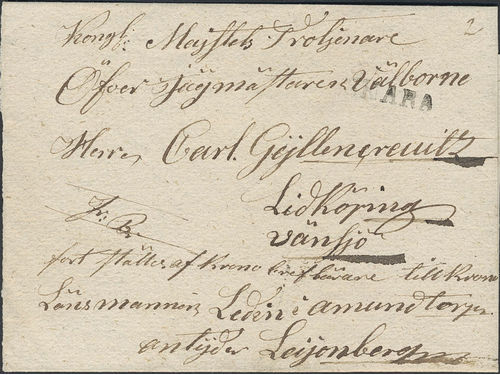 2
Kongl: Majstets Troljenare
Öfver Jägmästaren Välborne
SKARA
Herr Carl Gyllencreuitz
Lidköping
Vänsjö
Fr: Br
fort ställes af Krono bref bärare till Krono
Läns mannen Ledin i amundtorp
antyder Leijonberg